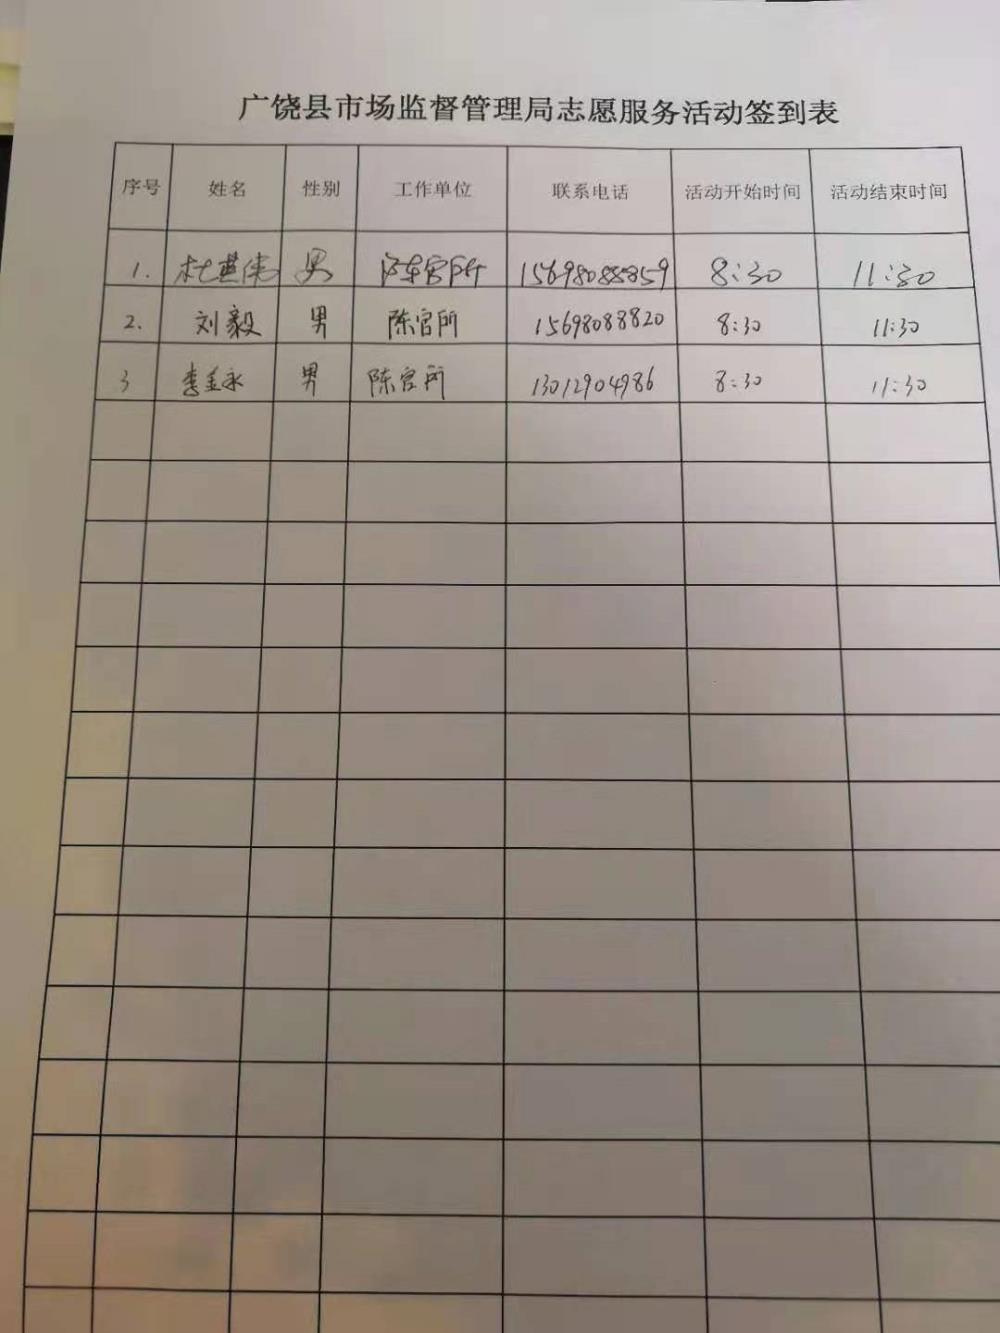 广饶县市场监督管理局志愿服务活动签到表
序号 姓名 性别 工作单位 联系电话 活动开始时间 活动结束时间
1. 杜其伟 男 陈官所 15698088859 8:30 11:30
2. 刘毅 男 陈官所 15698088820 8:30 11:30
3 李金永 男 陈官所 13012904986 8:30 11:30